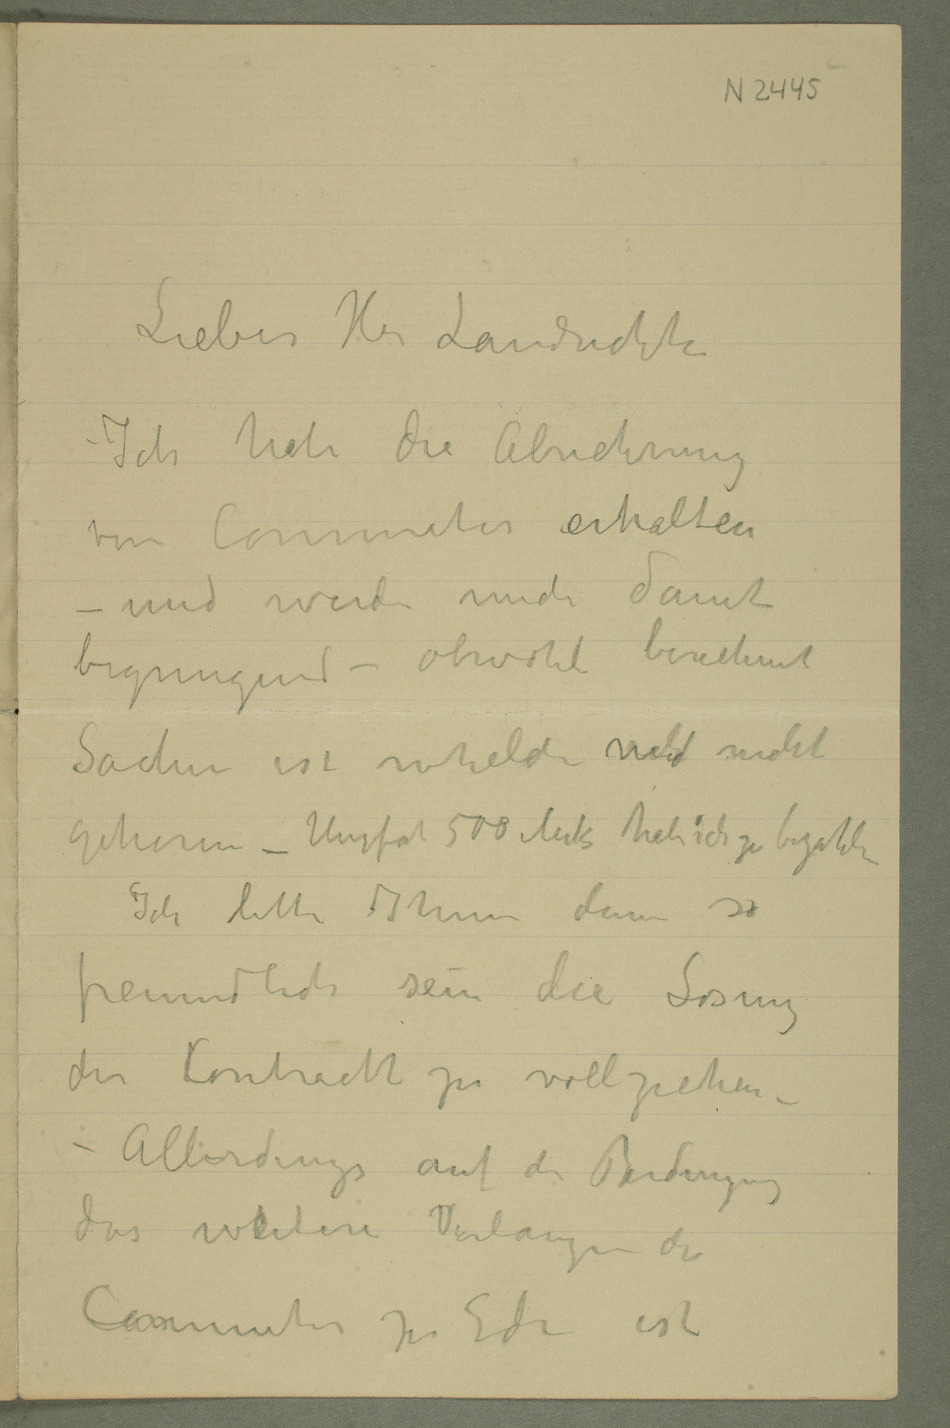 N 2445
Lieber Herr Landrichter
– Ich habe die Abrechnung
von Commeter erhalten
– und werde mich damit
begnügend – obwohl berechnet
Sachen ist welche nicht
gehören – Ungefär 500 Mark habe ich zu bezahlen
Ich bitte Ihnen dann so
freundlich sein die Losung
der Kontrackt zu vollziehen –
– Allerdings auf die Bedingung
das weitere Verlangen der
Commeter zu Ende ist